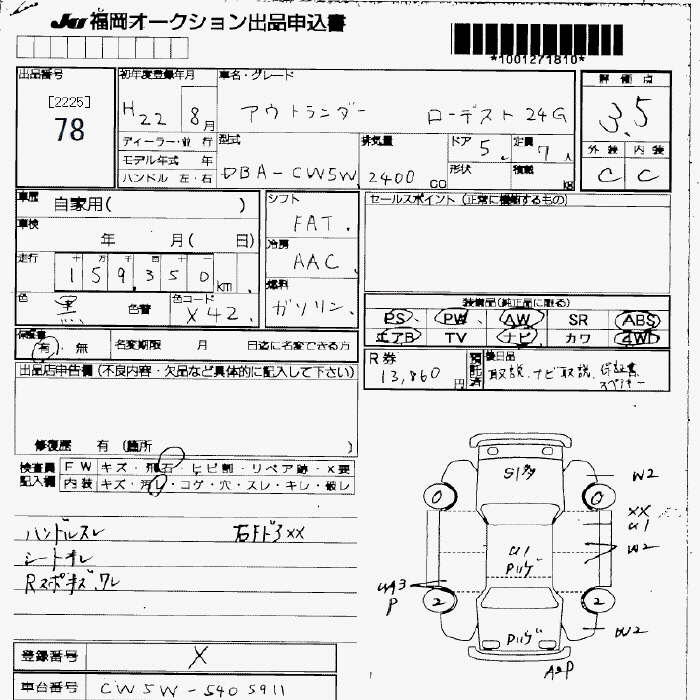 JU 福岡オークション出品申込書
*1001271810*
出品番号
[2225]
78
初年度登録年月
H22 8月
車名・グレード
アウトランダー ローデスト24G
評価点
3.5
外装 内装
C C
ディーラー・並行
モデル年式 年
ハンドル 左・右
型式
DBA-CW5W
排気量
2400 CC
ドア
5
定員
7人
形状
積載
kg
車歴 自家用( )
車検
年 月( 日)
走行
十 万 千 百 十
159,350 km
色 黒 色替
色コード X42
シフト
FAT
冷房
AAC
燃料
ガソリン
セールスポイント (正常に機能するもの)
装備品(純正品に限る)
PS PW AW SR ABS
エアB TV ナビ カワ 4WD
保証書
有・無
名変期限 月 日迄に名変できる方
R券
13,860円
預託済
後日品
取説、ナビ取説、保証書
スペアキー
出品店申告欄 (不良内容・欠品など具体的に記入して下さい)
修復歴 有 (箇所 )
検査員
記入欄
FW キズ・飛石・ヒビ割・リペア跡・X要
内装 キズ・汚レ・コゲ・穴・スレ・キレ・破レ
ハンドルスレ 右FドアXX
シートヨレ
S1 ヶタ
0 0
W2
XX
U1
U1
Pハゲ
W2
UA3
P
2 2
Pハゲ
W2
A2P
登録番号 X
車台番号 CW5W-5405911